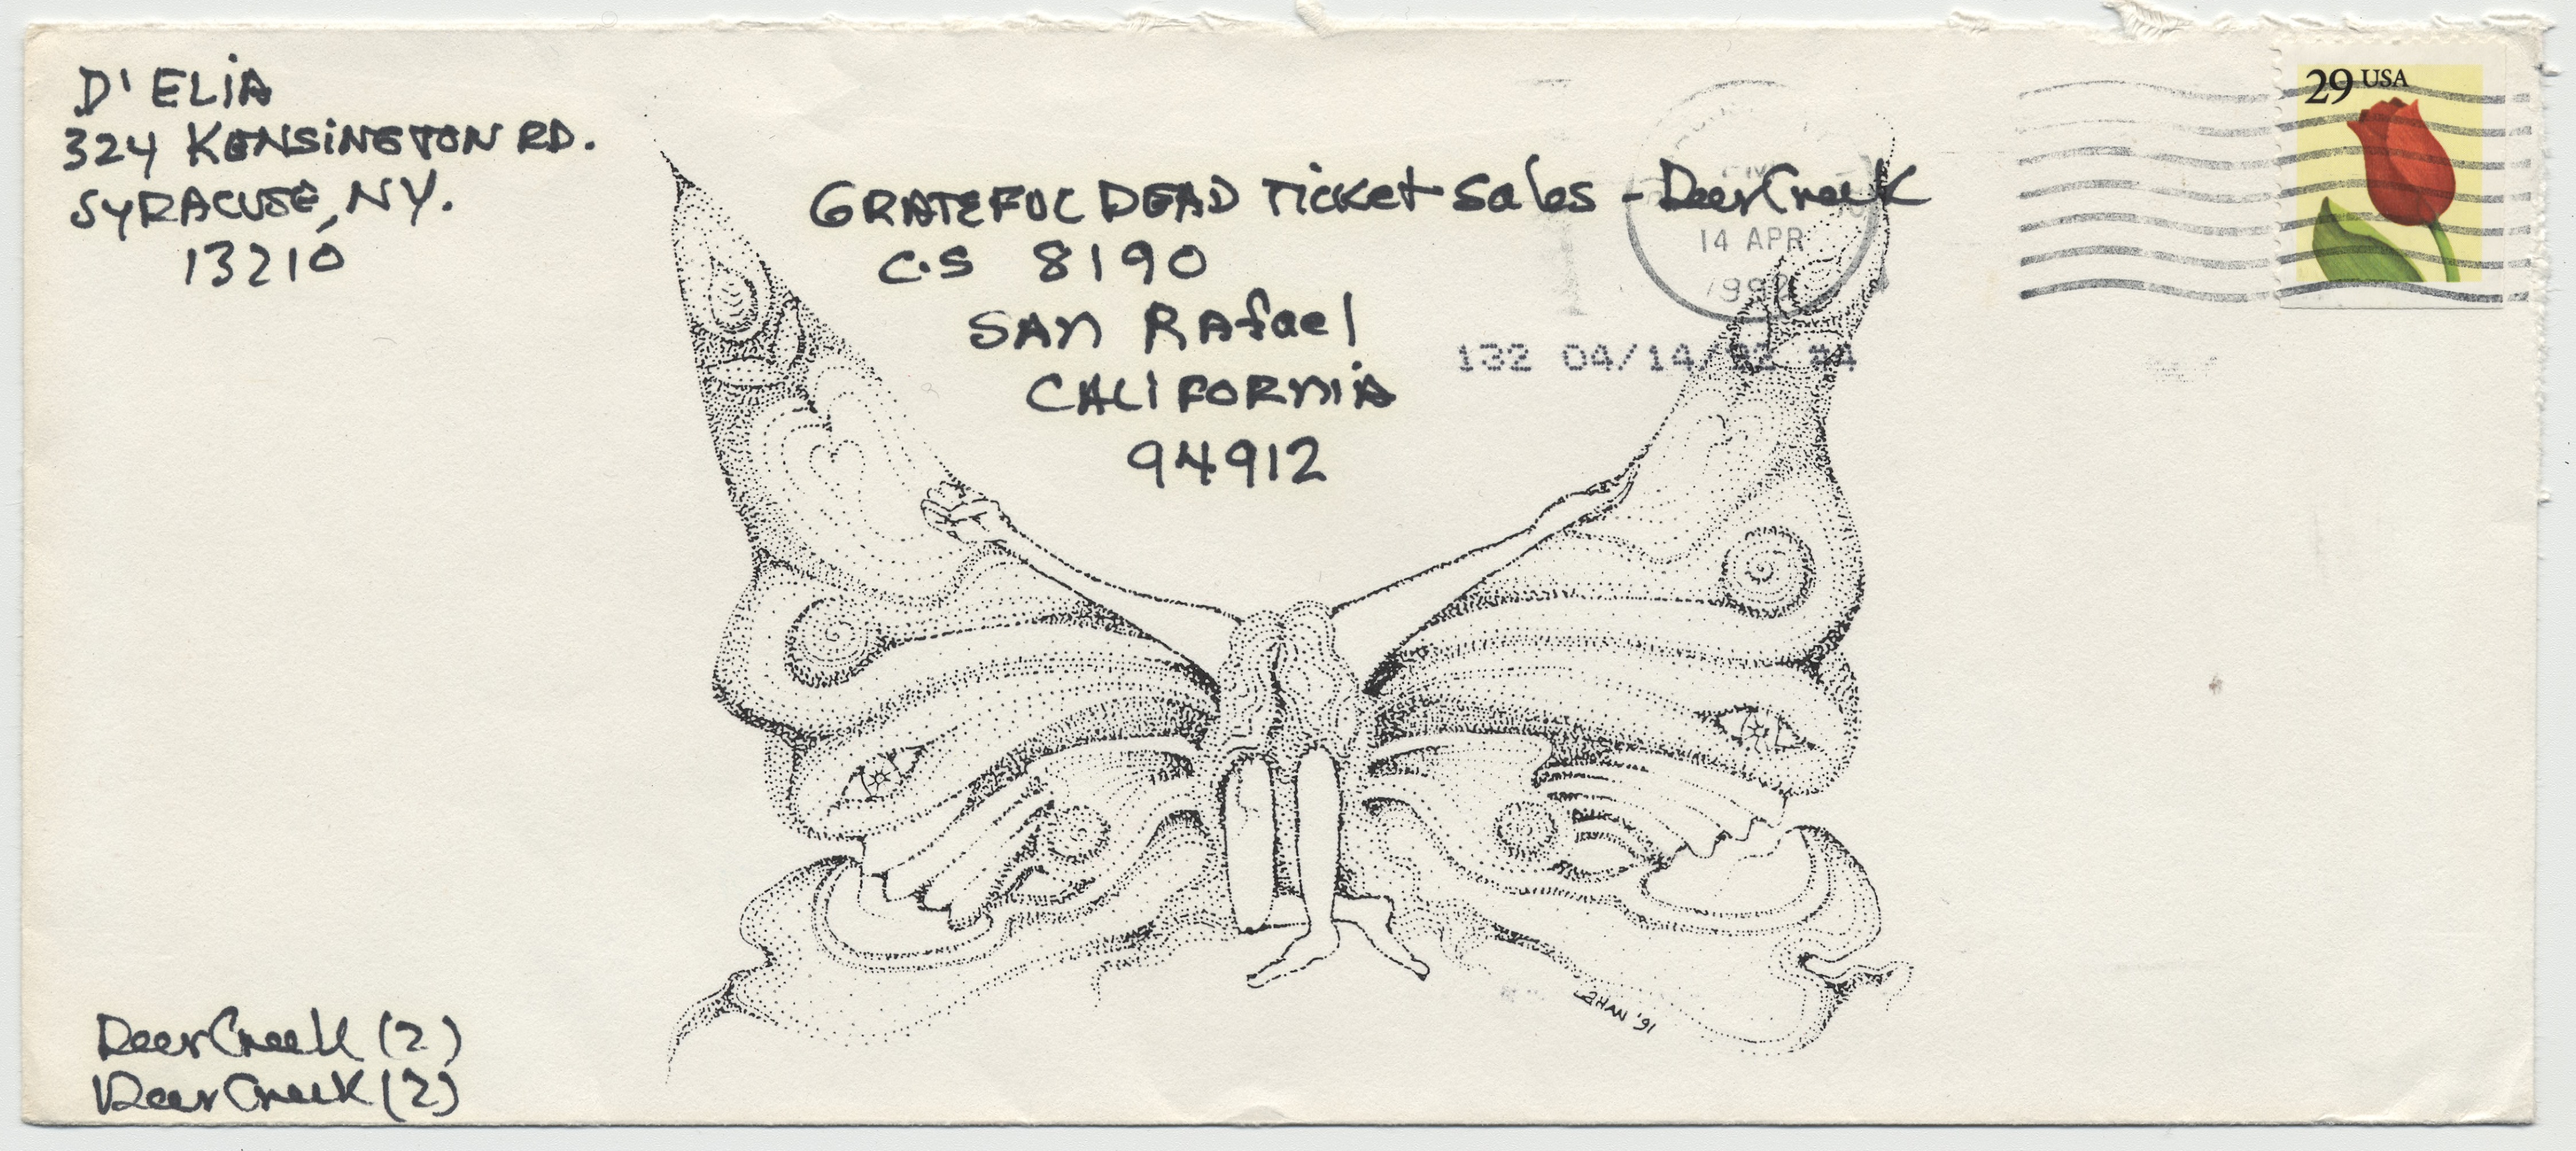 D'ELIA
324 KENSINGTON RD.
SYRACUSE, NY.
13210
GRATEFUL DEAD Ticket Sales - Deer Creek
C.S 8190
SAN RAfael
CALIFORNIA
94912
29 USA
PM
14 APR
1992
132 04/14/92 #4
Deer Creek (2)
Deer Creek (2)
'91